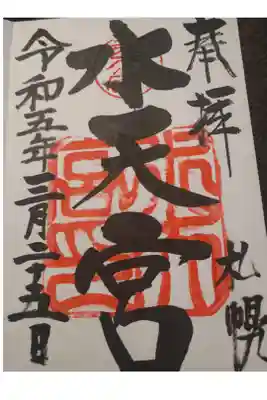 奉拝
札幌
水天宮
令和五年三月二十五日